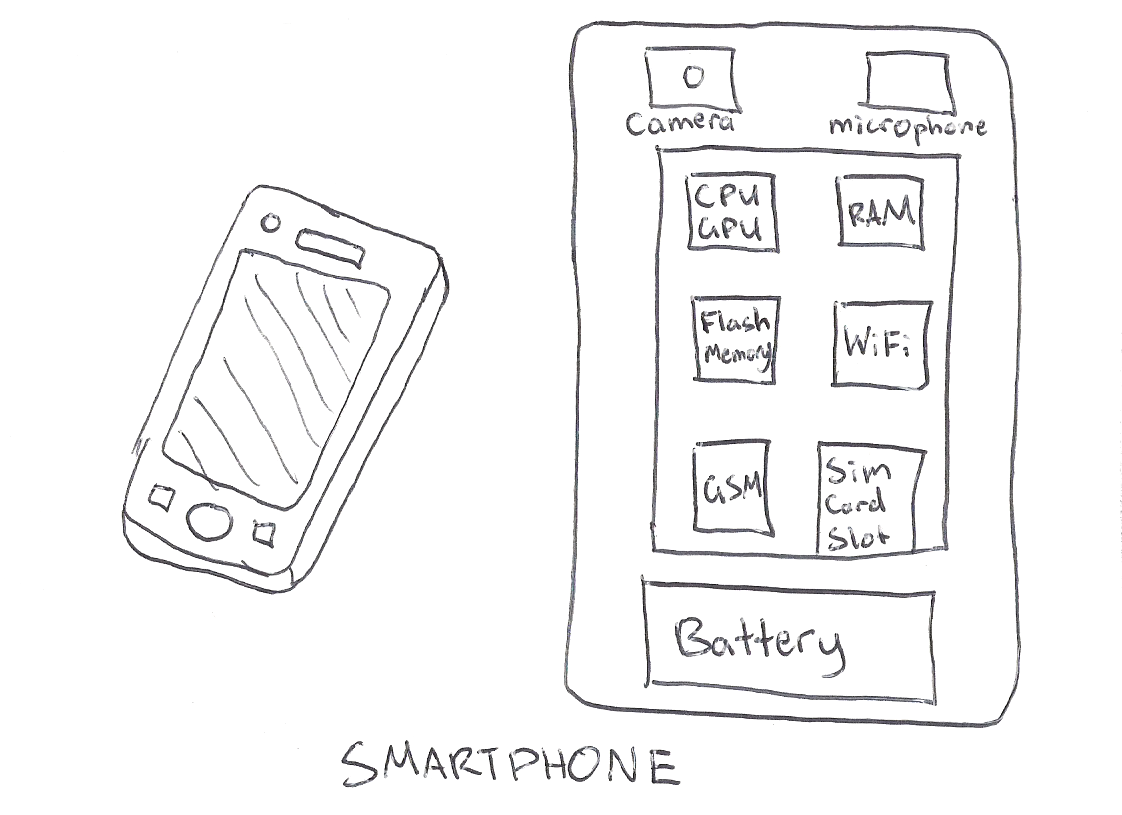 Camera
microphone
CPU
GPU
RAM
Flash
Memory
WiFi
GSM
Sim
Card
Slot
Battery
SMARTPHONE